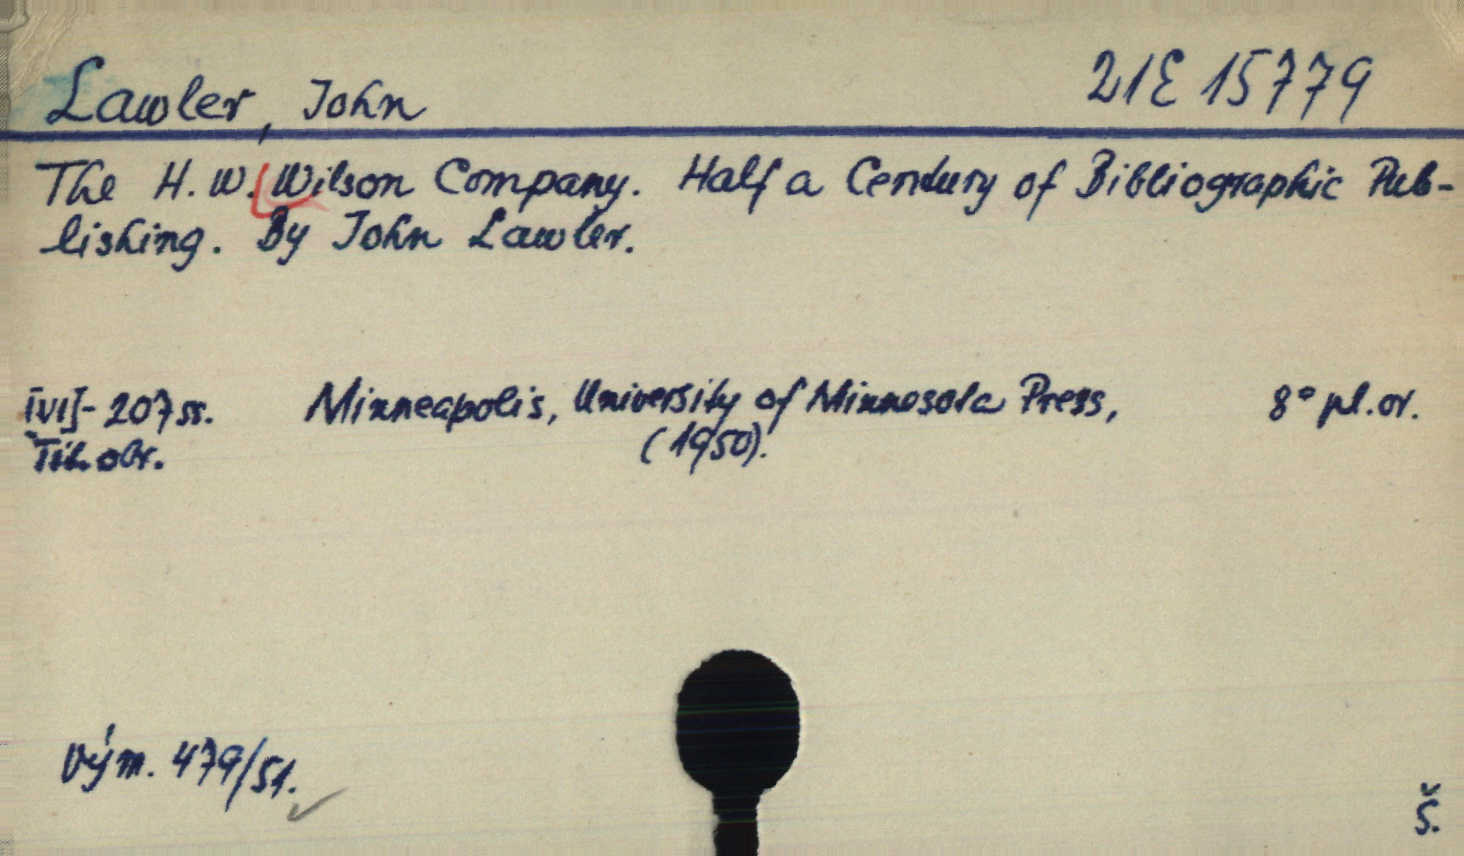 Lawler, John 21E 15779
The H. W. Wilson Company. Half a Century of Bibliographic Pub-
lishing. By John Lawler.
[VI]-207 ss. Minneapolis, University of Minnesota Press, 8° pl. or.
Tit. obr. (1950).
Vým. 479/51.
Š.